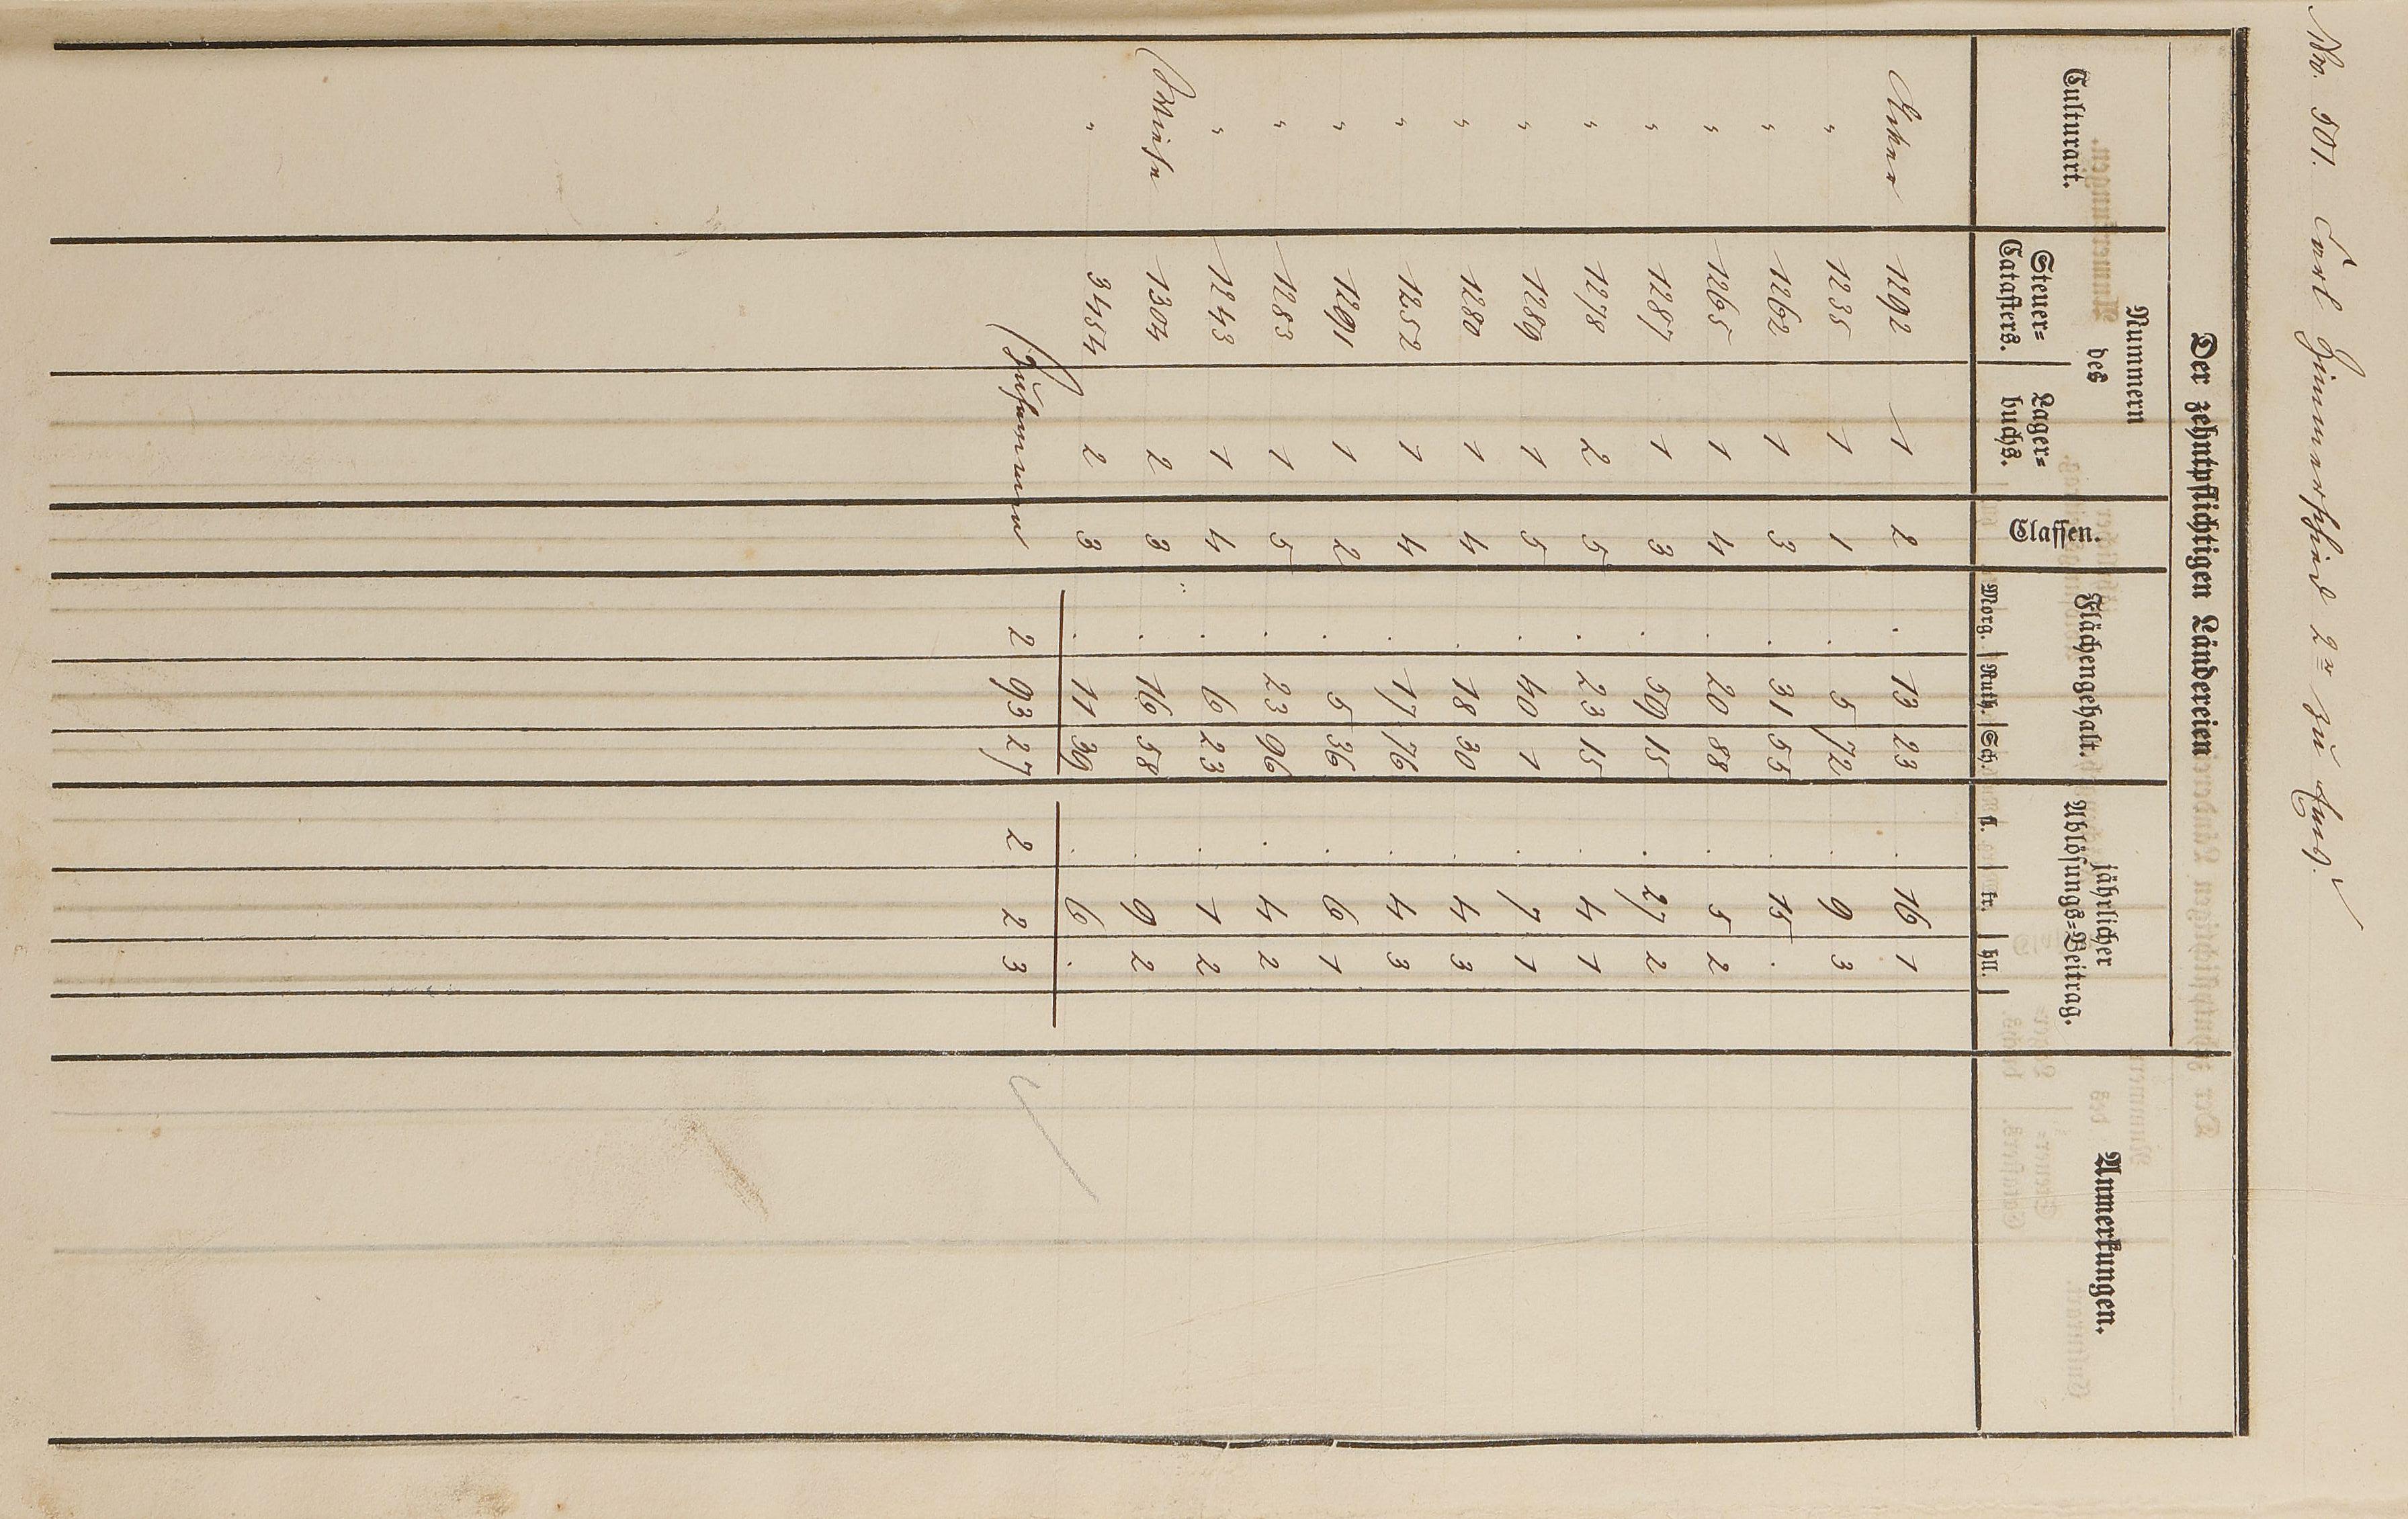 No. 501. Carl Zimmerschied 2r zu Ems.
Der zehntpflichtigen Ländereien
Culturart. Nummern des Steuer=Catasters. Lager=buchs. Classen. Flächengehalt. Morg. Ruth. Sch. jährlicher Ablösungs=Beitrag. fl. kr. hll. Anmerkungen.
Acker 1292 1 2 . 13 23 . 16 1
" 1235 1 1 . 5 72 . 9 3
" 1262 1 3 . 31 55 . 15 .
" 1265 1 4 . 20 88 . 5 2
" 1287 1 3 . 59 15 . 27 2
" 1278 2 5 . 23 15 . 4 1
" 1289 1 5 . 40 1 . 7 1
" 1280 1 4 . 18 30 . 4 3
" 1252 1 4 . 17 76 . 4 3
" 1291 1 2 . 5 36 . 6 1
" 1283 1 5 . 23 96 . 4 2
" 1243 1 4 . 6 23 . 1 2
Wiese 1304 2 3 . 16 58 . 9 2
" 3454 2 3 . 11 39 . 6 .
Zusammen 2 93 27 2 2 3